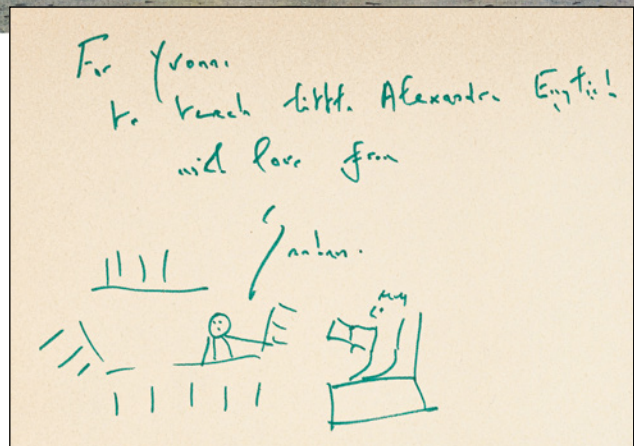 For Yvonne
to teach little Alexandra English
with love from
Jonathan.